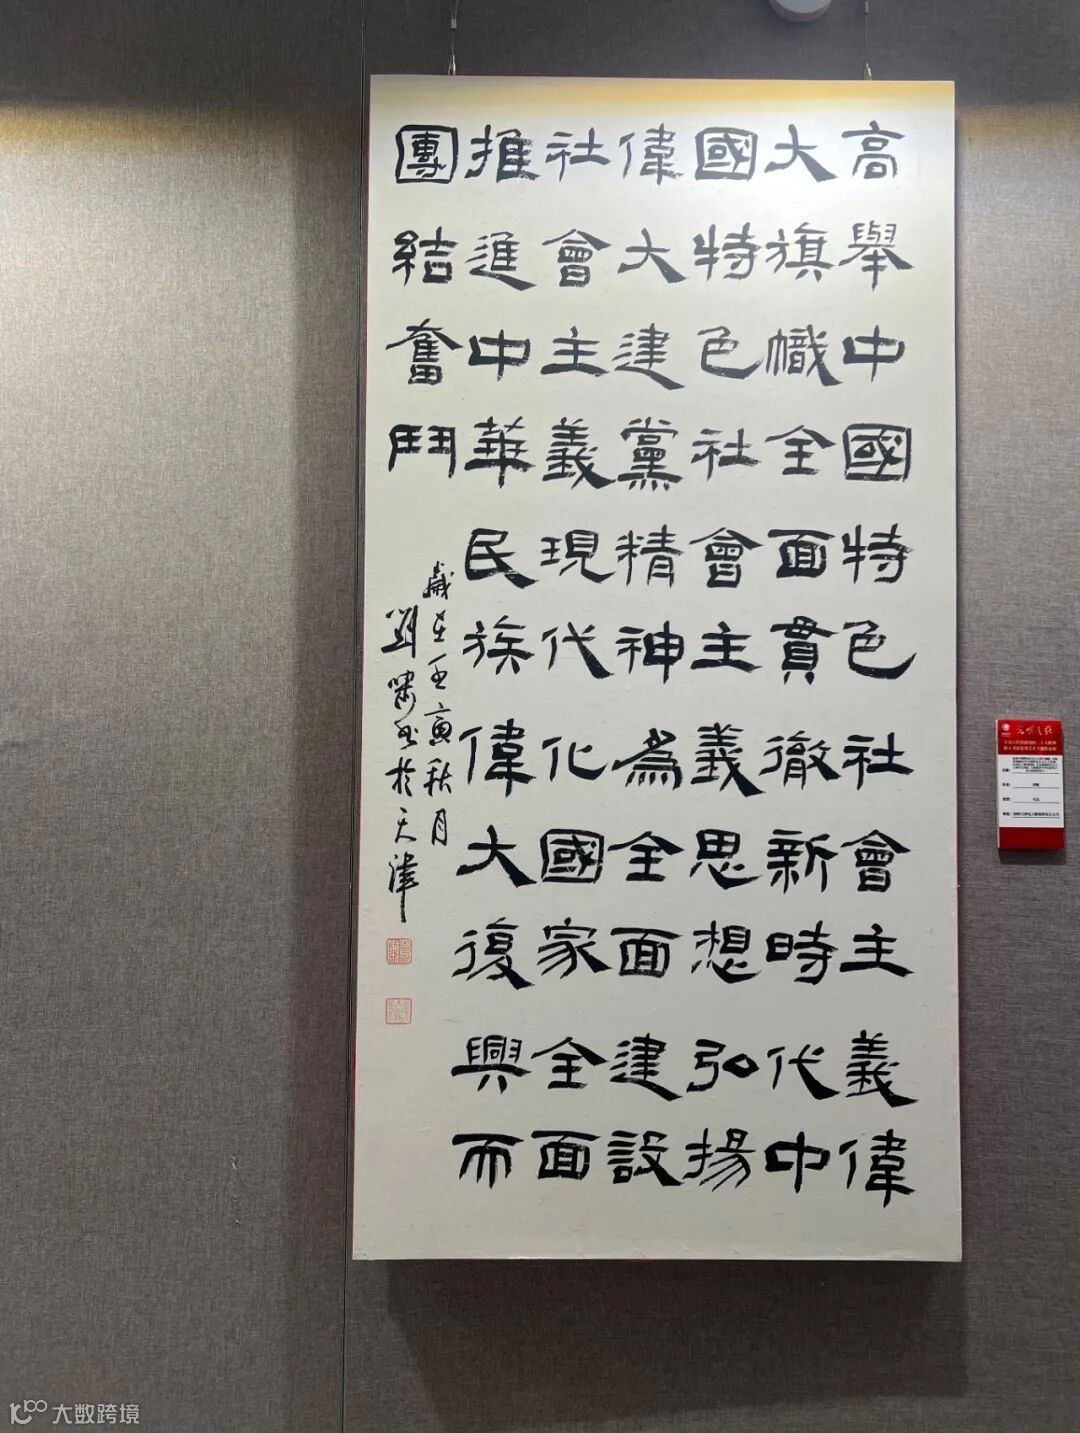 高舉中國特色社會主義偉
大旗幟全面貫徹新時代中
國特色社會主義思想弘揚
偉大建黨精神為全面建設
社會主義現代化國家全面
推進中華民族偉大復興而
團結奮鬥
歲在壬寅秋月
劉嘯书於天津
大数跨境